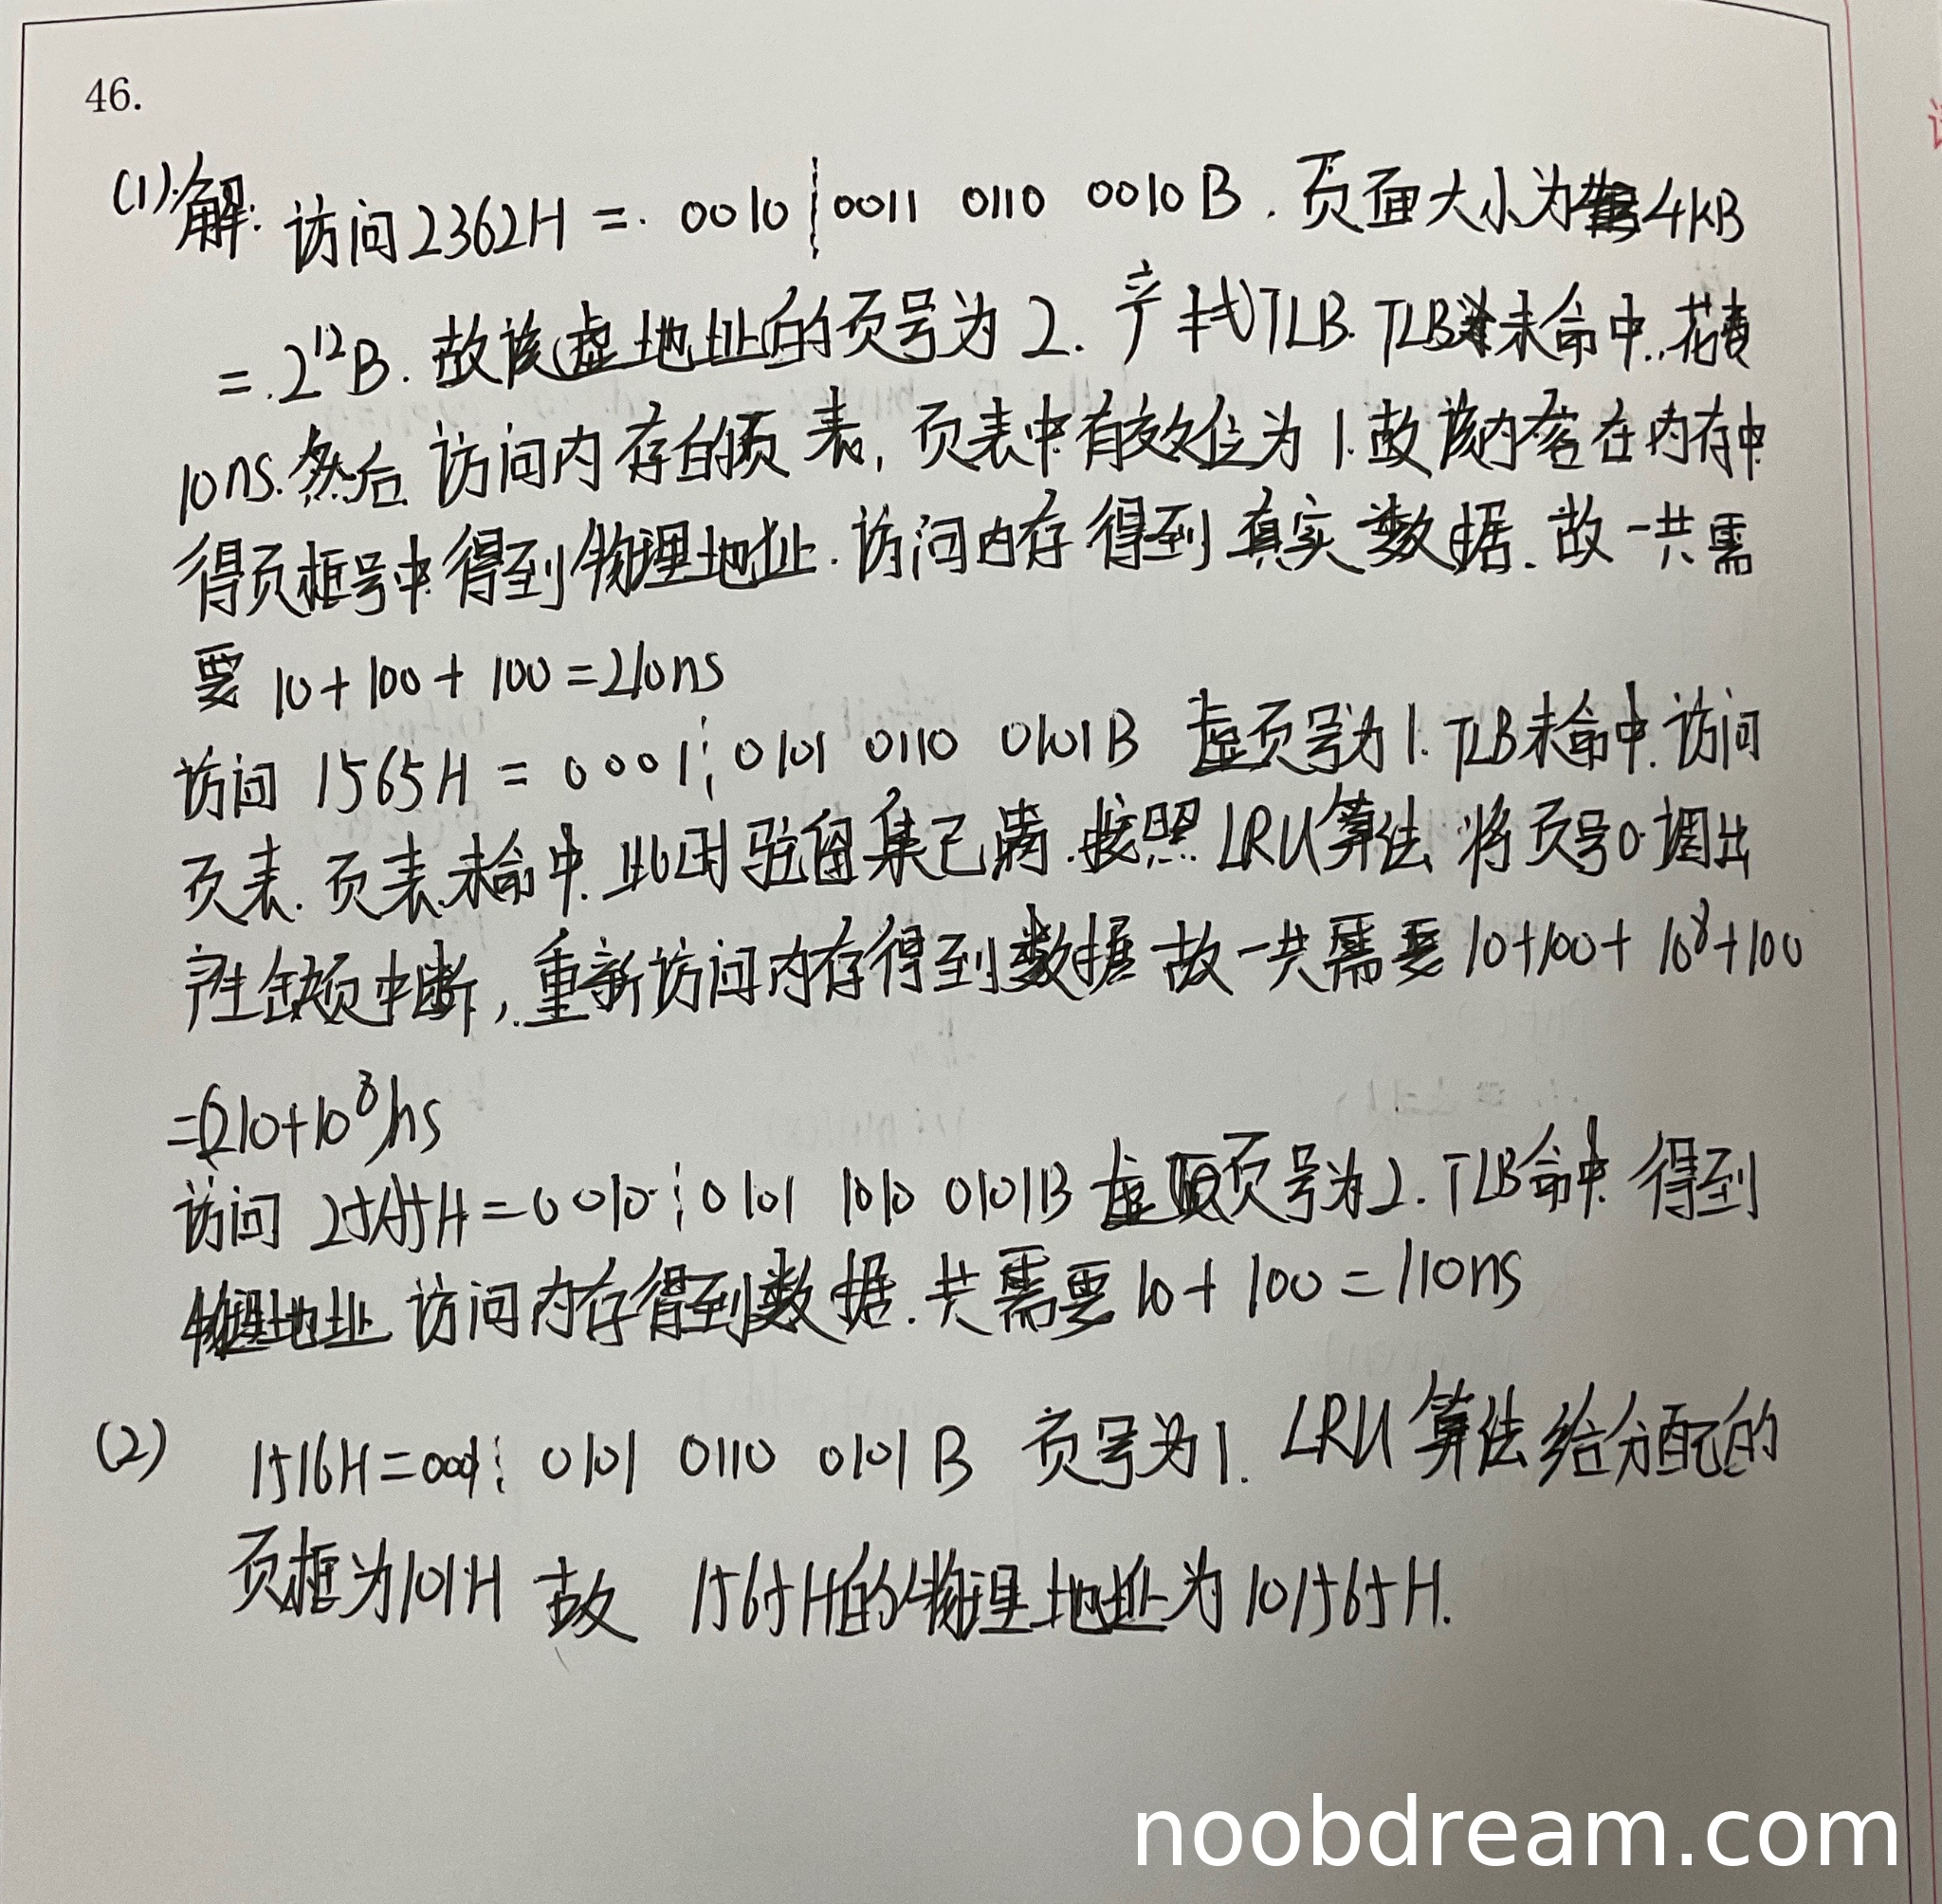 46.
(1)解: 访问2362H = 0010 0011 0110 0010B. 页面大小为4KB
= 2¹²B. 故该虚地址的页号为2. 先找TLB. TLB未命中. 花费
10ns. 然后访问内存的页表, 页表中有效位为1. 故该内容在内存中
得页框号中得到物理地址. 访问内存得到真实数据. 故一共需
要 10+100+100=210ns
访问 1565H = 0001 0101 0110 0101B 虚页号为1. TLB未命中. 访问
页表. 页表未命中. 此时驻留集已满. 按照LRU算法 将页号0调出
产生缺页中断, 重新访问内存得到数据 故一共需要10+100+10⁸+100
=(210+10⁸)ns
访问 25A5H=0010 0101 1010 0101B 虚页号为2. TLB命中 得到
物理地址 访问内存得到数据. 共需要10+100=110ns
(2) 1516H=0001 0101 0110 0101B 页号为1. LRU算法给分配的
页框为101H 故 1565H的物理地址为101565H.
noobdream.com